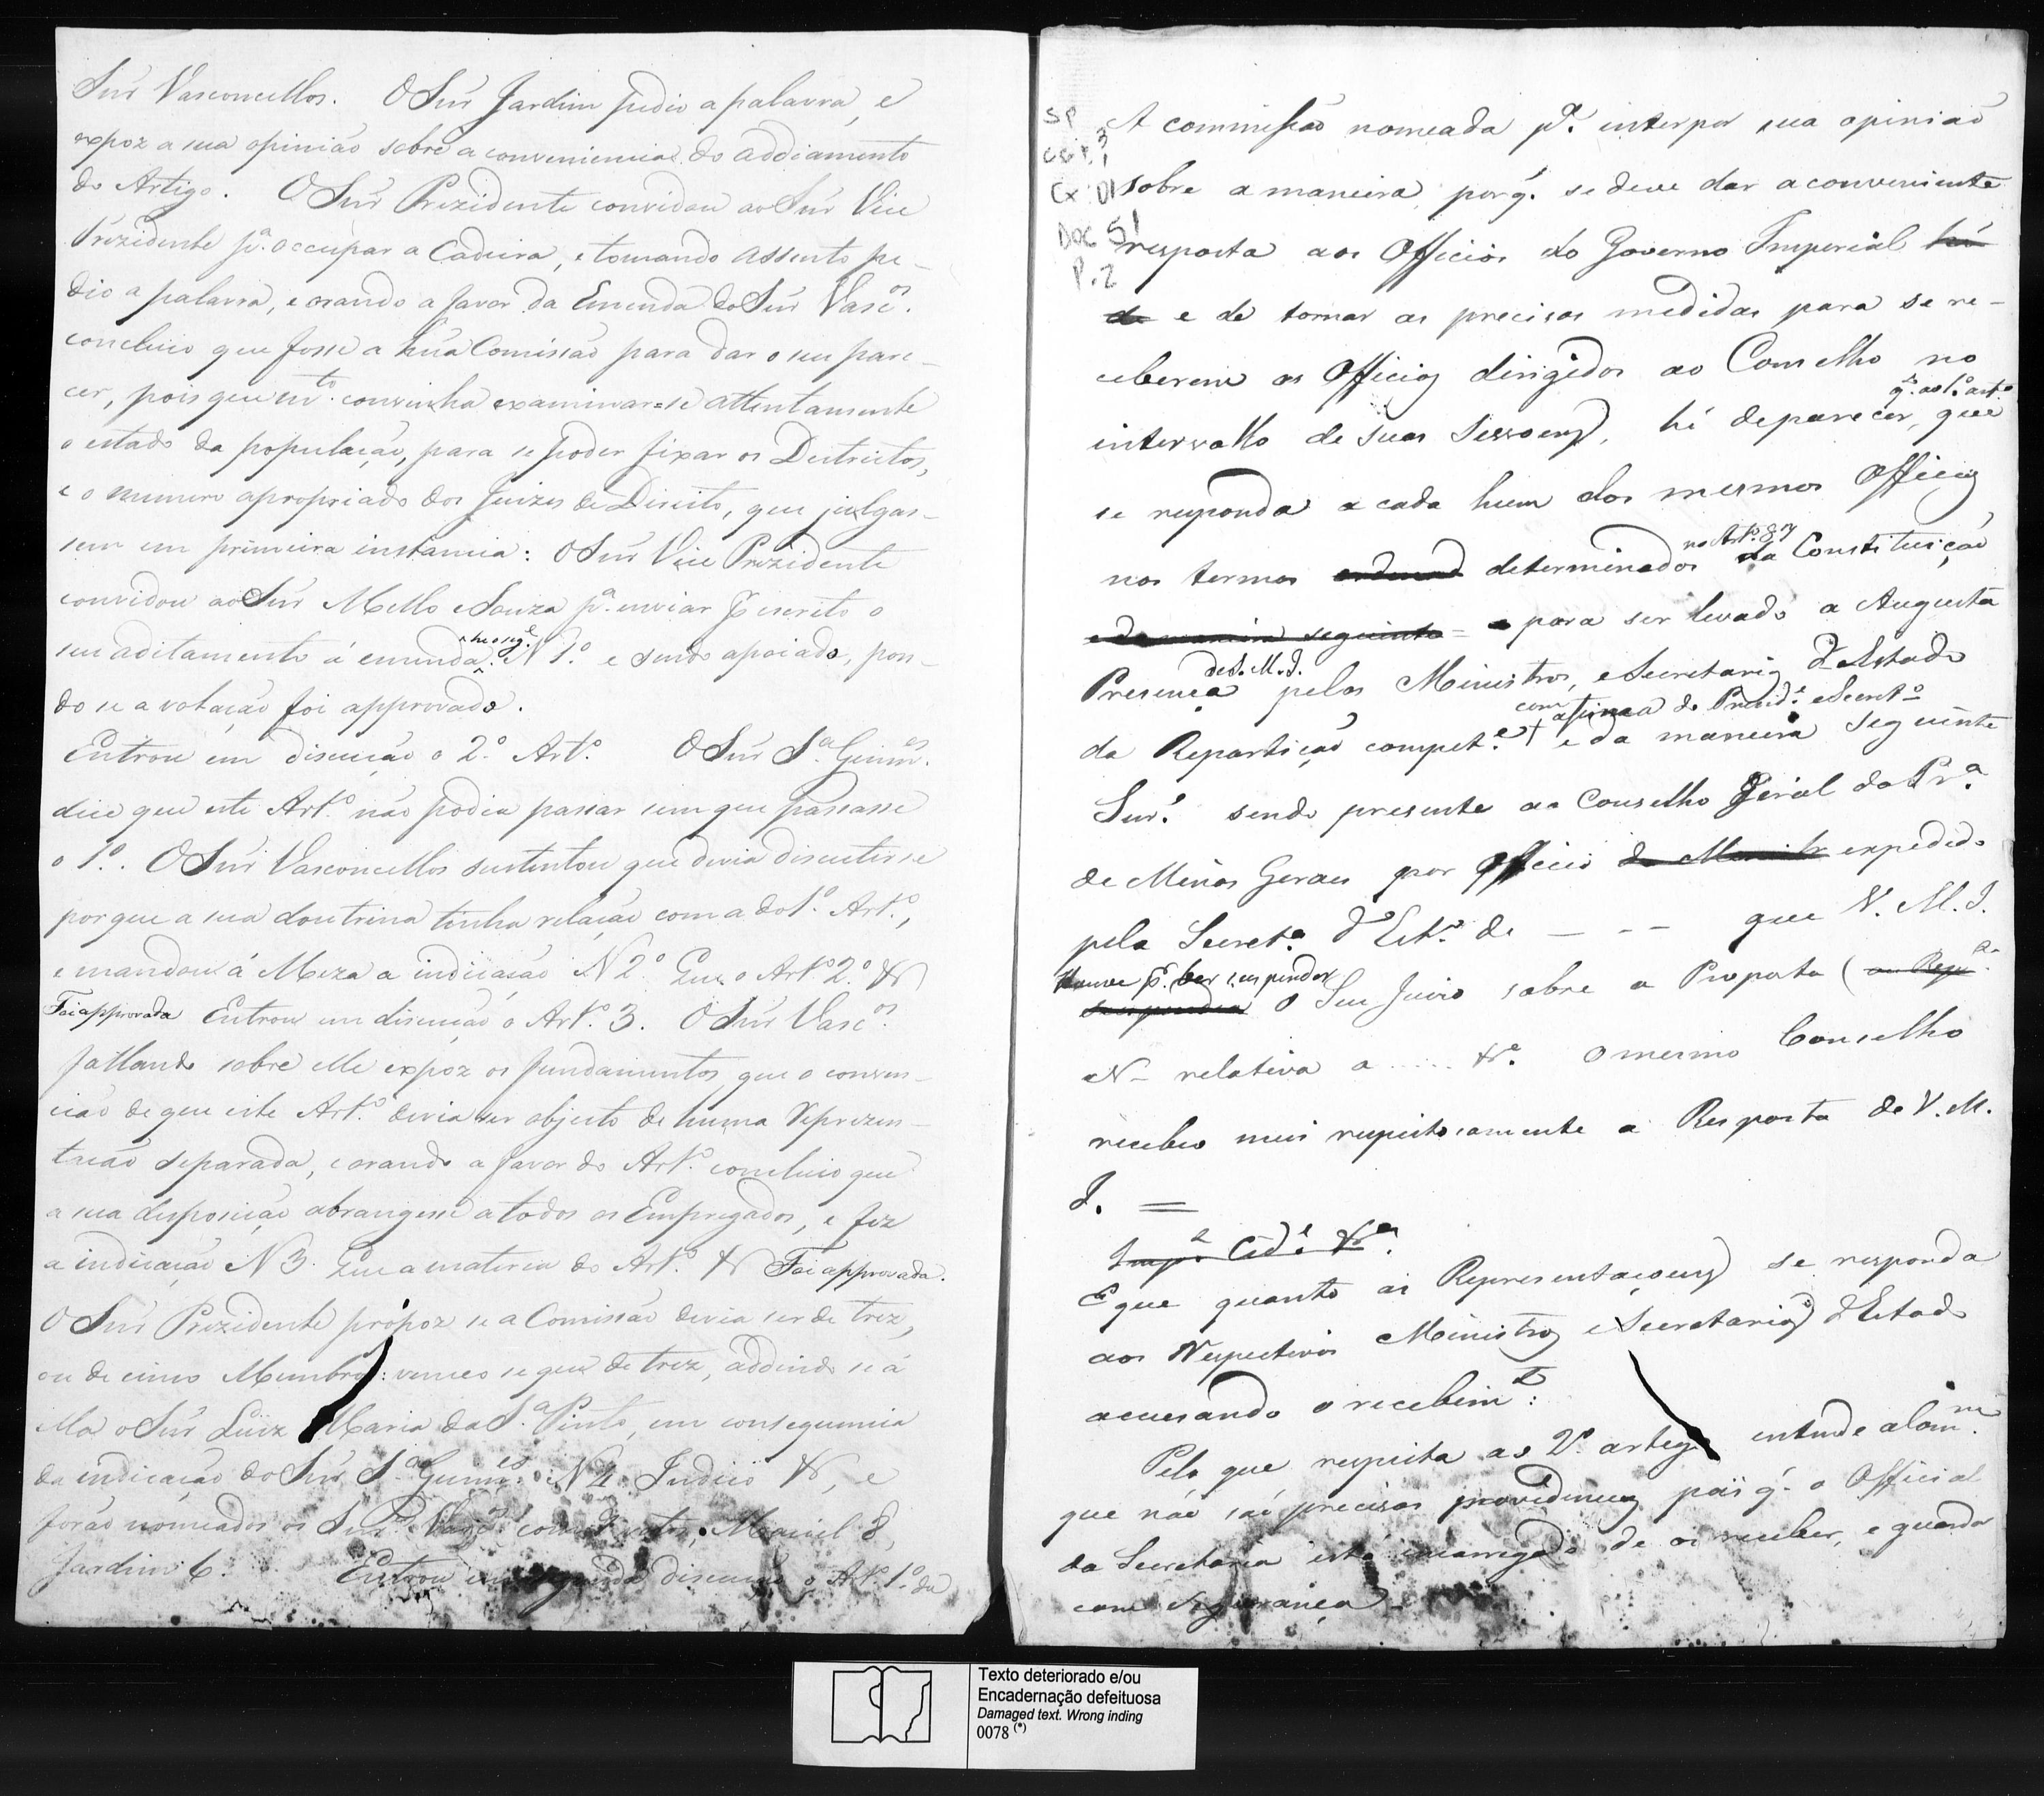 Snr̃ Vasconcellos. O Snr̃ Jardim pedio a palavra, e
expoz a sua opinião sobre a conveniencia do addiamento
do Artigo. O Snr̃ Prezidente convidou ao Snr̃ Vice
Prezidente pª. occupar a Cadeira, e tomando assento pe-
dio a palavra, e orando a favor da Emenda do Snr̃ Vascºˢ.
concluio que fosse a hũa Comissão para dar o seu pare-
cer, pois que mᵗᵒ. convinha examinar=se attentamente
o estado da população, para se poder fixar os Destrictos,
e o numero apropriado dos Juizes de Direito, que julgas-
sem em primeira instancia: O Snr̃ Vice Prezidente
convidou ao Snr̃ Mello e Souza pª. enviar p escrito o
seu aditamento á emenda N 1.º e sendo apoiado, pon-
do se a votação foi approvado.
Entrou em discução o 2.º Art.º O Snr̃ S.ª Guimˢ.
dice que este Art.º não podia passar sem que passasse
o 1º. O Snr̃ Vasconcellos sustentou que devia discutir se
porque a sua doutrina tinha relação com a do 1.º Art.º,
e mandou á Meza a indicação N 2.º Que o Artº 2.º &
Foi approvada Entrou em discução o Art.º 3. O Snr̃ Vascºˢ.
fallando sobre elle expoz os fundamentos, que o conven-
cião de que este Art.º devia ser objecto de huma Reprezen-
tação separada, e orando a favor do Art.º concluio que
a sua disposição abrangesse a todos os Empregados, e fez
a indicação N 3. Que a materia do Art.º & Foi approvada.
O Snr̃ Prezidente propoz se a Comissão devia ser de trez,
ou de cinco Membros: venceo se que de trez, addindo se á
ella o Snr̃ Luiz Maria da S.ª Pinto, em consequencia
da indicação do Snr̃ S.ª Guimᵉˢ N 4 Indico &, e
forão nomeados os Snrˢ Vascºˢ com votos, Maciel 8,
Jardim 6. Entrou em segunda discução o Art.º 1.º da
SP
CGP. 3
Cx: 01
DOC 51
P. 2
A commissão nomeada pª. interpor sua opinião
sobre a maneira, porq̃. se deve dar a conveniente
resposta aos Officios do Governo Imperial hé
de e de tomar as precisas medidas para se re-
ceberem os Officios dirigidos ao Conselho no
qᵗᵒ. ao 1.º artº.
intervallo de suas Sessoens, hé de parecer, que
se responda a cada hum dos mesmos Officios
no Art.º 87
nos termos determinados da Constituição
e da maneira seguinte = para ser levado a Augusta
de S. M. I.
Presença pelos Ministros, e Secretarios d'Estado
com assignᵃ do Presidᵉ e Secretº
da Repartição competᵉ + e da maneira seguinte
Snr.ᵉ sendo presente ao Conselho Geral da Prª.
de Minas Geraes por Officio expedido
pela Secretª d'Estº de - - - que V. M. I.
Houve p. bem suspender
suspender o Seu Juizo sobre a Proposta (
N- relativa a ..... &ª. O mesmo Conselho
recebeo mui respeitosamente a Resposta de V. M.
I. =
E que quanto ás Representaçoens se responda
aos Respectivos Ministros e Secretarios d'Estado
acusando o recebimᵗᵒ:
Pelo que respeita ao 2º. artigo entende a Comᵐ.
que não são precisas providencias pois q̃. o Official
da Secretaria está encarregado de os receber, e guardar
com segurança
Texto deteriorado e/ou
Encadernação defeituosa
Damaged text. Wrong inding
0078 (*)